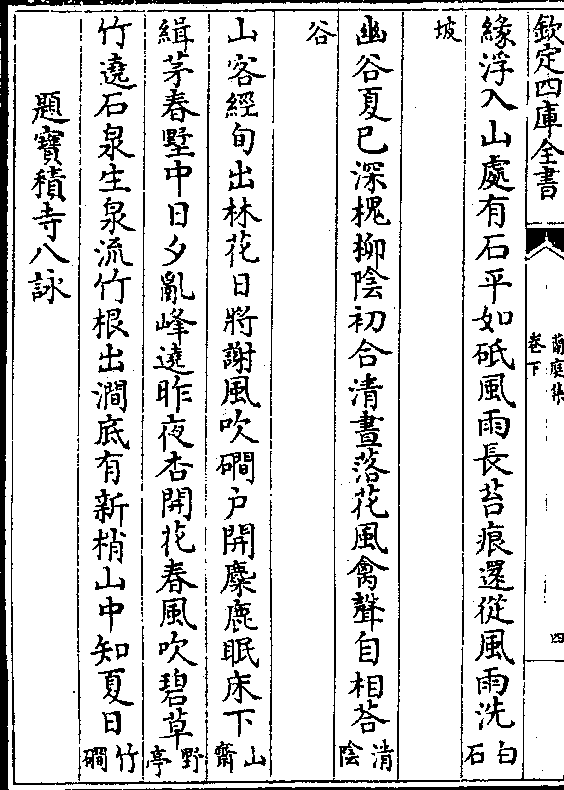 欽定四庫全書
蘭庭集
卷下
四
緣浮入山處有石平如砥風雨長苔痕還從風雨洗白石
坡
幽谷夏已深槐柳陰初合清晝落花風禽聲自相荅清陰
谷
山客經旬出林花日將謝風吹磵戶開麋鹿眠床下山齋
緝茅春墅中日夕亂峰遶昨夜杏開花春風吹碧草野亭
竹遶石泉生泉流竹根出澗底有新梢山中知夏日竹磵
題寶積寺八詠